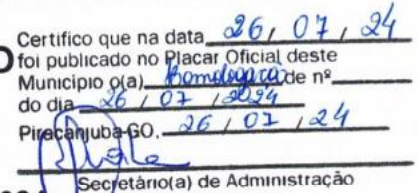 Certifico que na data 26, 07, 24
foi publicado no Placar Oficial deste
Município o(a) Homologação de nº
do dia 26 / 07 / 2024
Piracanjuba-GO, 26 / 07 / 24
Secretário(a) de Administração